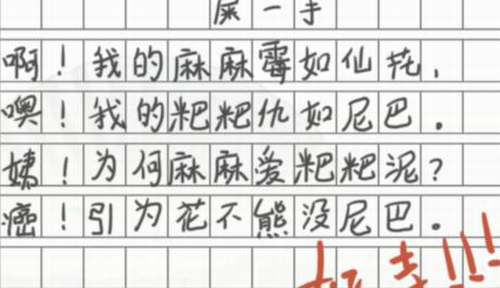 屎一手
啊！我的麻麻霉如仙花，
噢！我的粑粑仇如尼巴。
姨！为何麻麻爱粑粑泥？
癌！引为花不熊没尼巴。
!!!